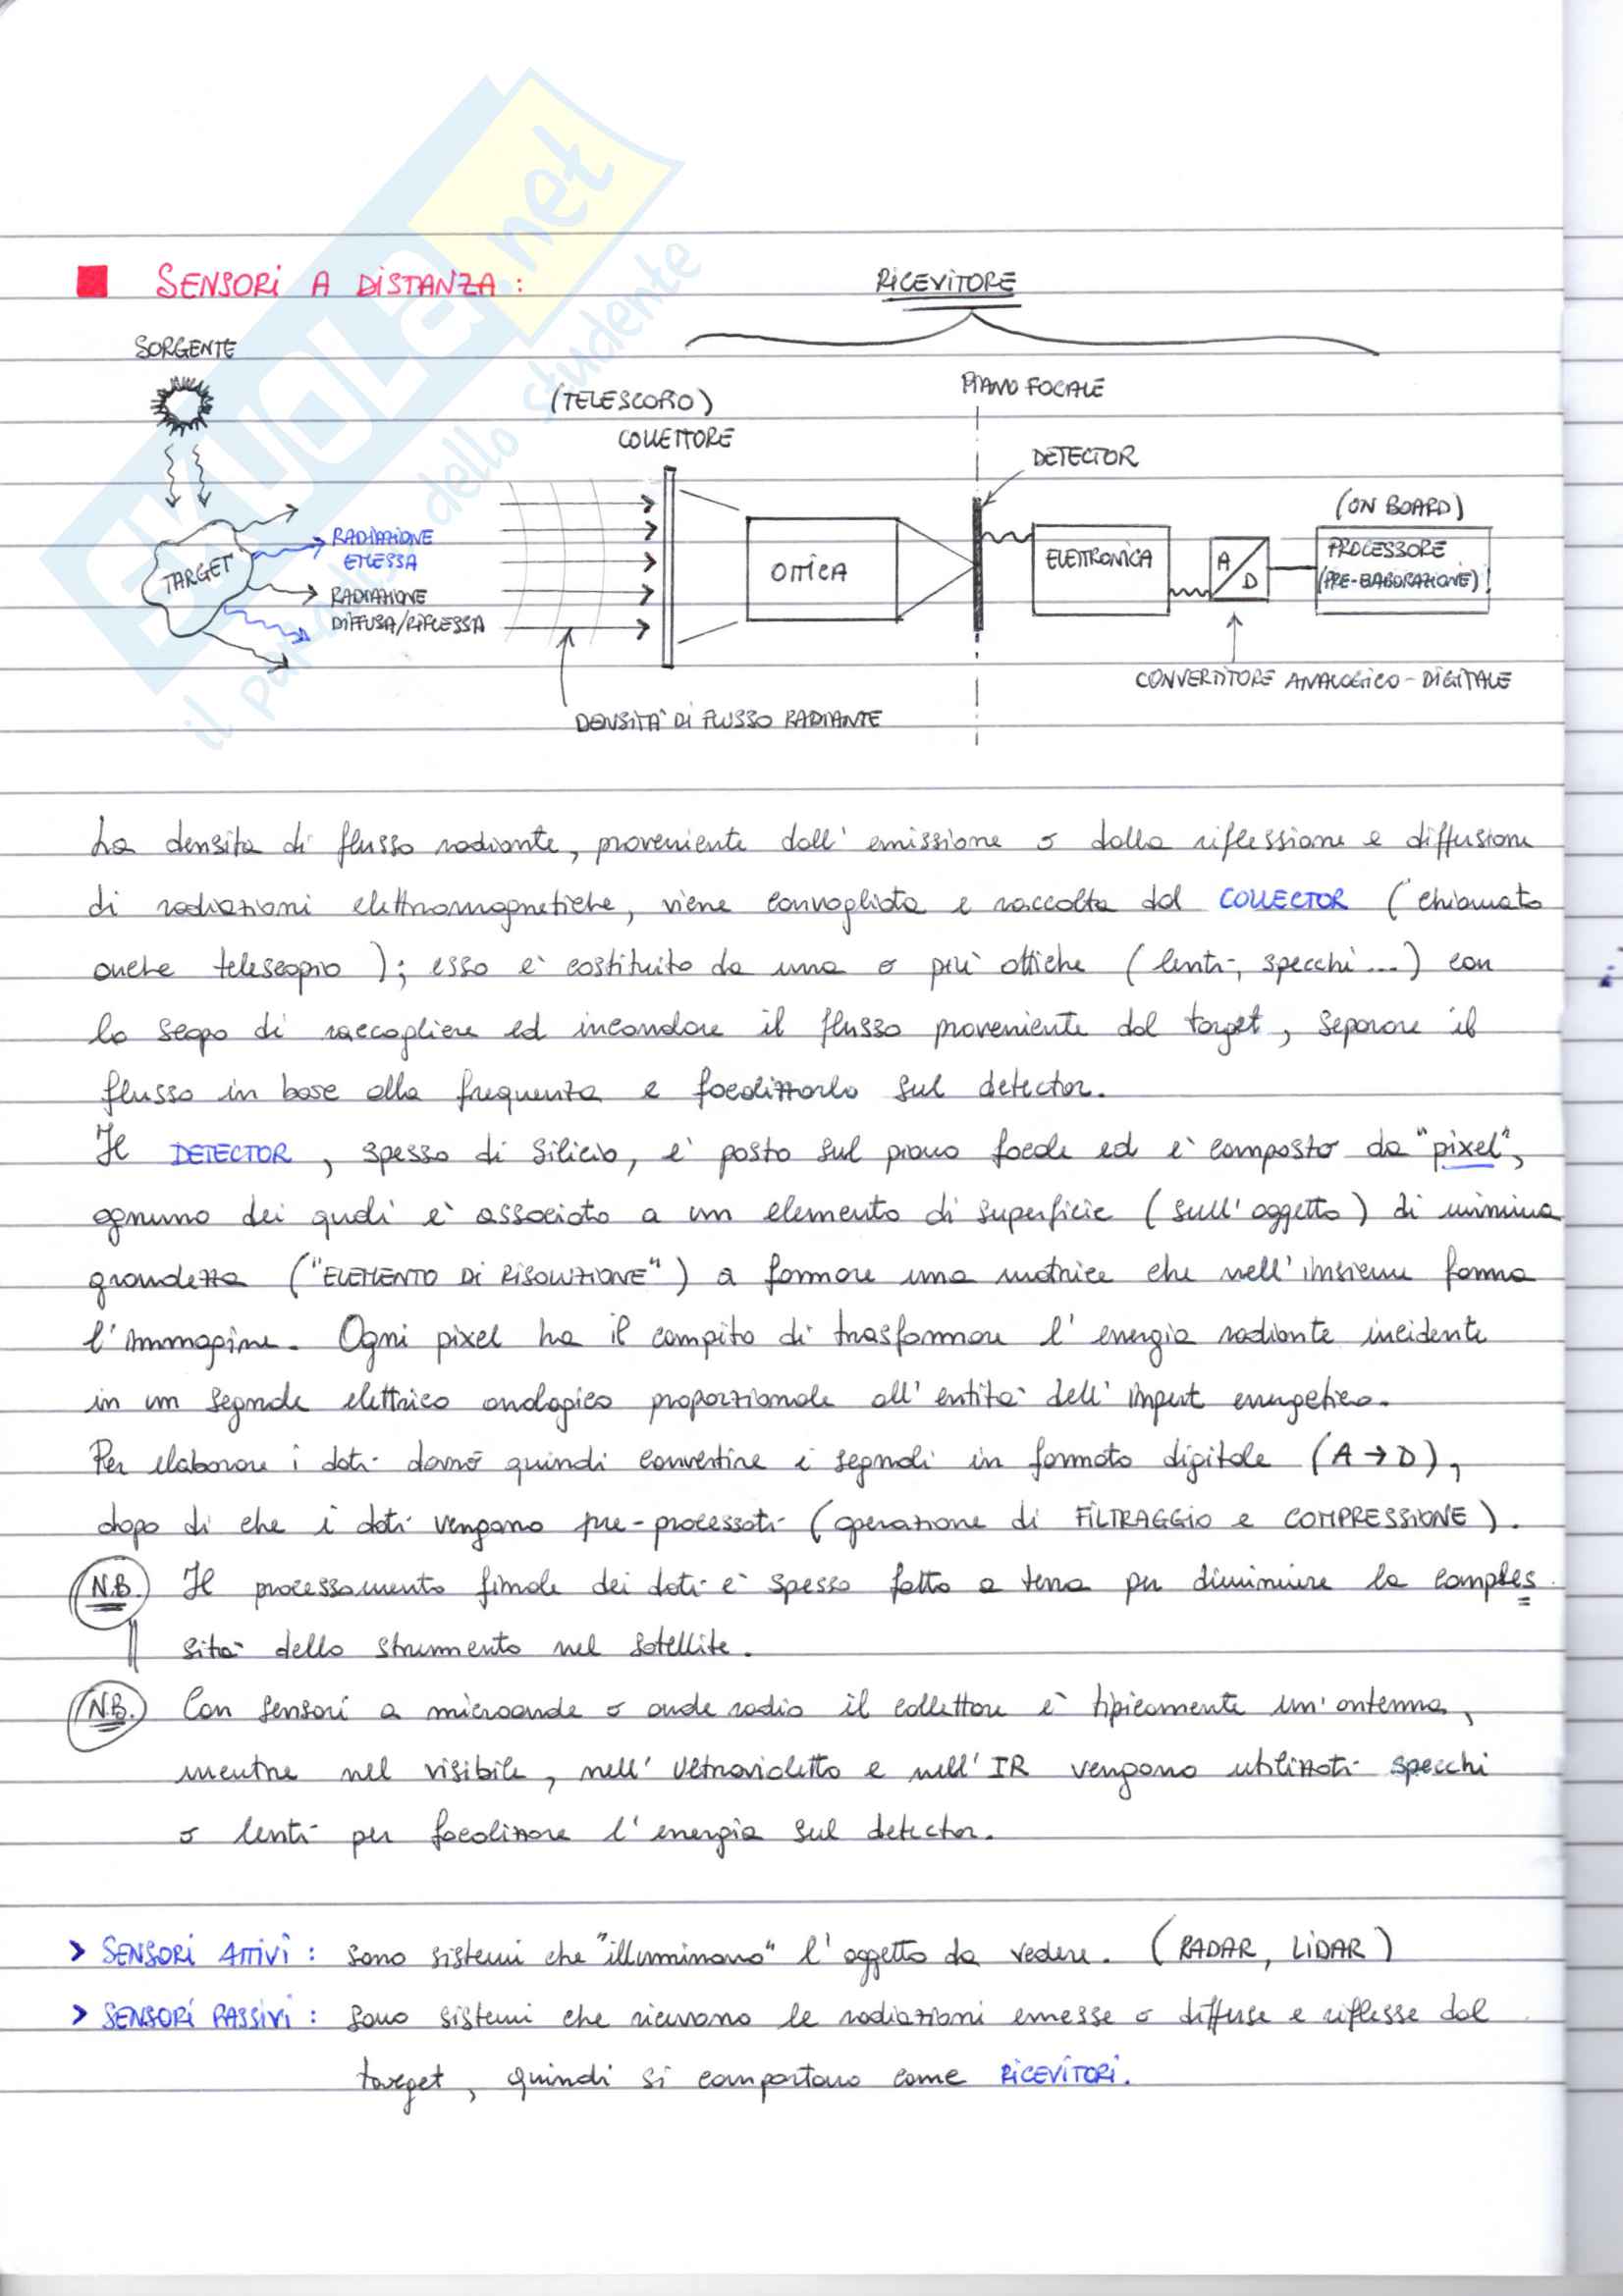 SKUOLA.net
il paradiso dello studente
SENSORI A DISTANZA :
RICEVITORE
SORGENTE
PIANO FOCALE
(TELESCOPIO)
COLLETTORE
DETECTOR
(ON BOARD)
RADIAZIONE
EMESSA
TARGET
OTTICA
ELETTRONICA
A/D
PROCESSORE
(PRE-ELABORAZIONE)
RADIAZIONE
DIFFUSA/RIFLESSA
CONVERTITORE ANALOGICO-DIGITALE
DENSITA' DI FLUSSO RADIANTE
La densita di flusso radiante, proveniente dall' emissione o dalla riflessione e diffusione
di radiazioni elettromagnetiche, viene convogliata e raccolta dal COLLECTOR (chiamato
anche telescopio); esso e' costituito da una o piu' ottiche (lenti, specchi...) con
lo scopo di raccogliere ed incanalare il flusso proveniente dal target, separare il
flusso in base alla frequenza e focalizzarlo sul detector.
Il DETECTOR, spesso di silicio, e' posto sul piano focale ed e' composto da "pixel",
ognuno dei quali e' associato a un elemento di superficie (sull'oggetto) di minima
grandezza ("ELEMENTO DI RISOLUZIONE") a formare una matrice che nell'insieme forma
l'immagine. Ogni pixel ha il compito di trasformare l'energia radiante incidente
in un segnale elettrico analogico proporzionale all'entita' dell'input energetico.
Per elaborare i dati dovrò quindi convertire i segnali in formato digitale (A → D),
dopo di che i dati vengono pre-processati (operazione di FILTRAGGIO e COMPRESSIONE).
N.B. Il processamento finale dei dati e' spesso fatto a terra per diminuire la comples
sita' dello strumento nel satellite.
N.B. Con sensori a microonde o onde radio il collettore e' tipicamente un'antenna,
mentre nel visibile, nell'ultravioletto e nell'IR vengono utilizzati specchi
o lenti per focalizzare l'energia sul detector.
> SENSORI ATTIVI : sono sistemi che "illuminano" l'oggetto da vedere. (RADAR, LIDAR)
> SENSORI PASSIVI : sono sistemi che ricevono le radiazioni emesse o diffuse e riflesse dal
target, quindi si comportano come RICEVITORI.